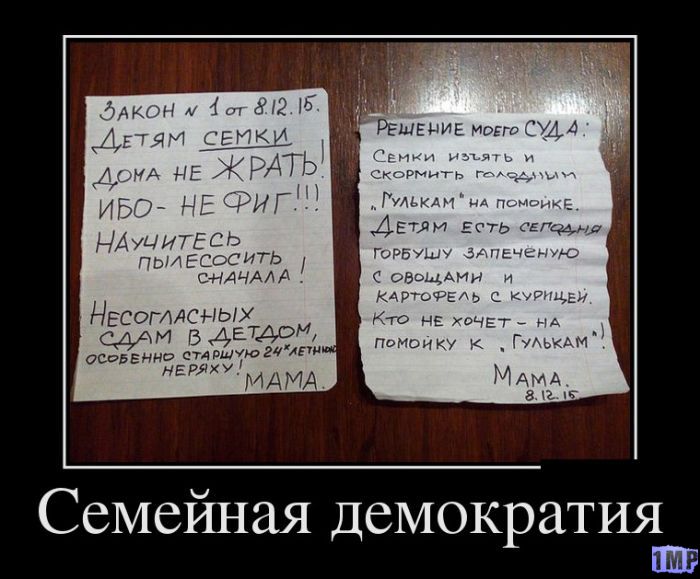 Закон № 1 от 8.12.15.
Детям семки
дома не ЖРАТЬ!
ИБО - НЕ ФИГ!!!
Научитесь
пылесосить
сначала!
Несогласных
сдам в детдом,
особенно старшую 24х летнюю
неряху!
МАМА.
Решение моего СУДА:
Семки изъять и
скормить голодным
„Гулькам" на помойке.
Детям есть сегодня
горбушу запечёную
с овощами и
картофель с курицей.
Кто не хочет - на
помойку к „Гулькам"!
Мама.
8.12.15
Семейная демократия
1MP